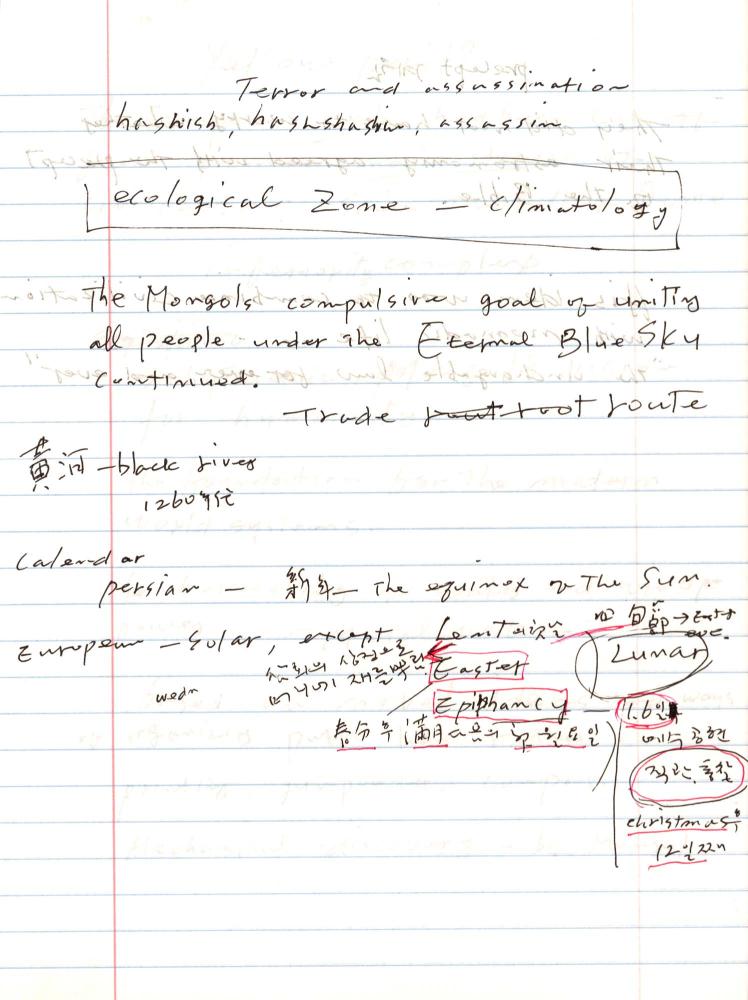 Terror and assassination
hashish, hashshashin, assassin
ecological zone – climatology
The Mongols compulsive goal of uniting
all people under the Eternal Blue Sky
continued.
Trade rout root route
黃河 – black river
1260年代
Calendar
persian – 新年 – The equinox of The Sun.
European – Solar, except Lent 四旬節 → Easter
Lunar
참회의 상징으로
Easter
wedn 머리에 재를
Epiphancy – 1.6일
춘분 후 満月 다음의 첫 일요일
예수 공현
직관, 통찰
christmas후
12일째